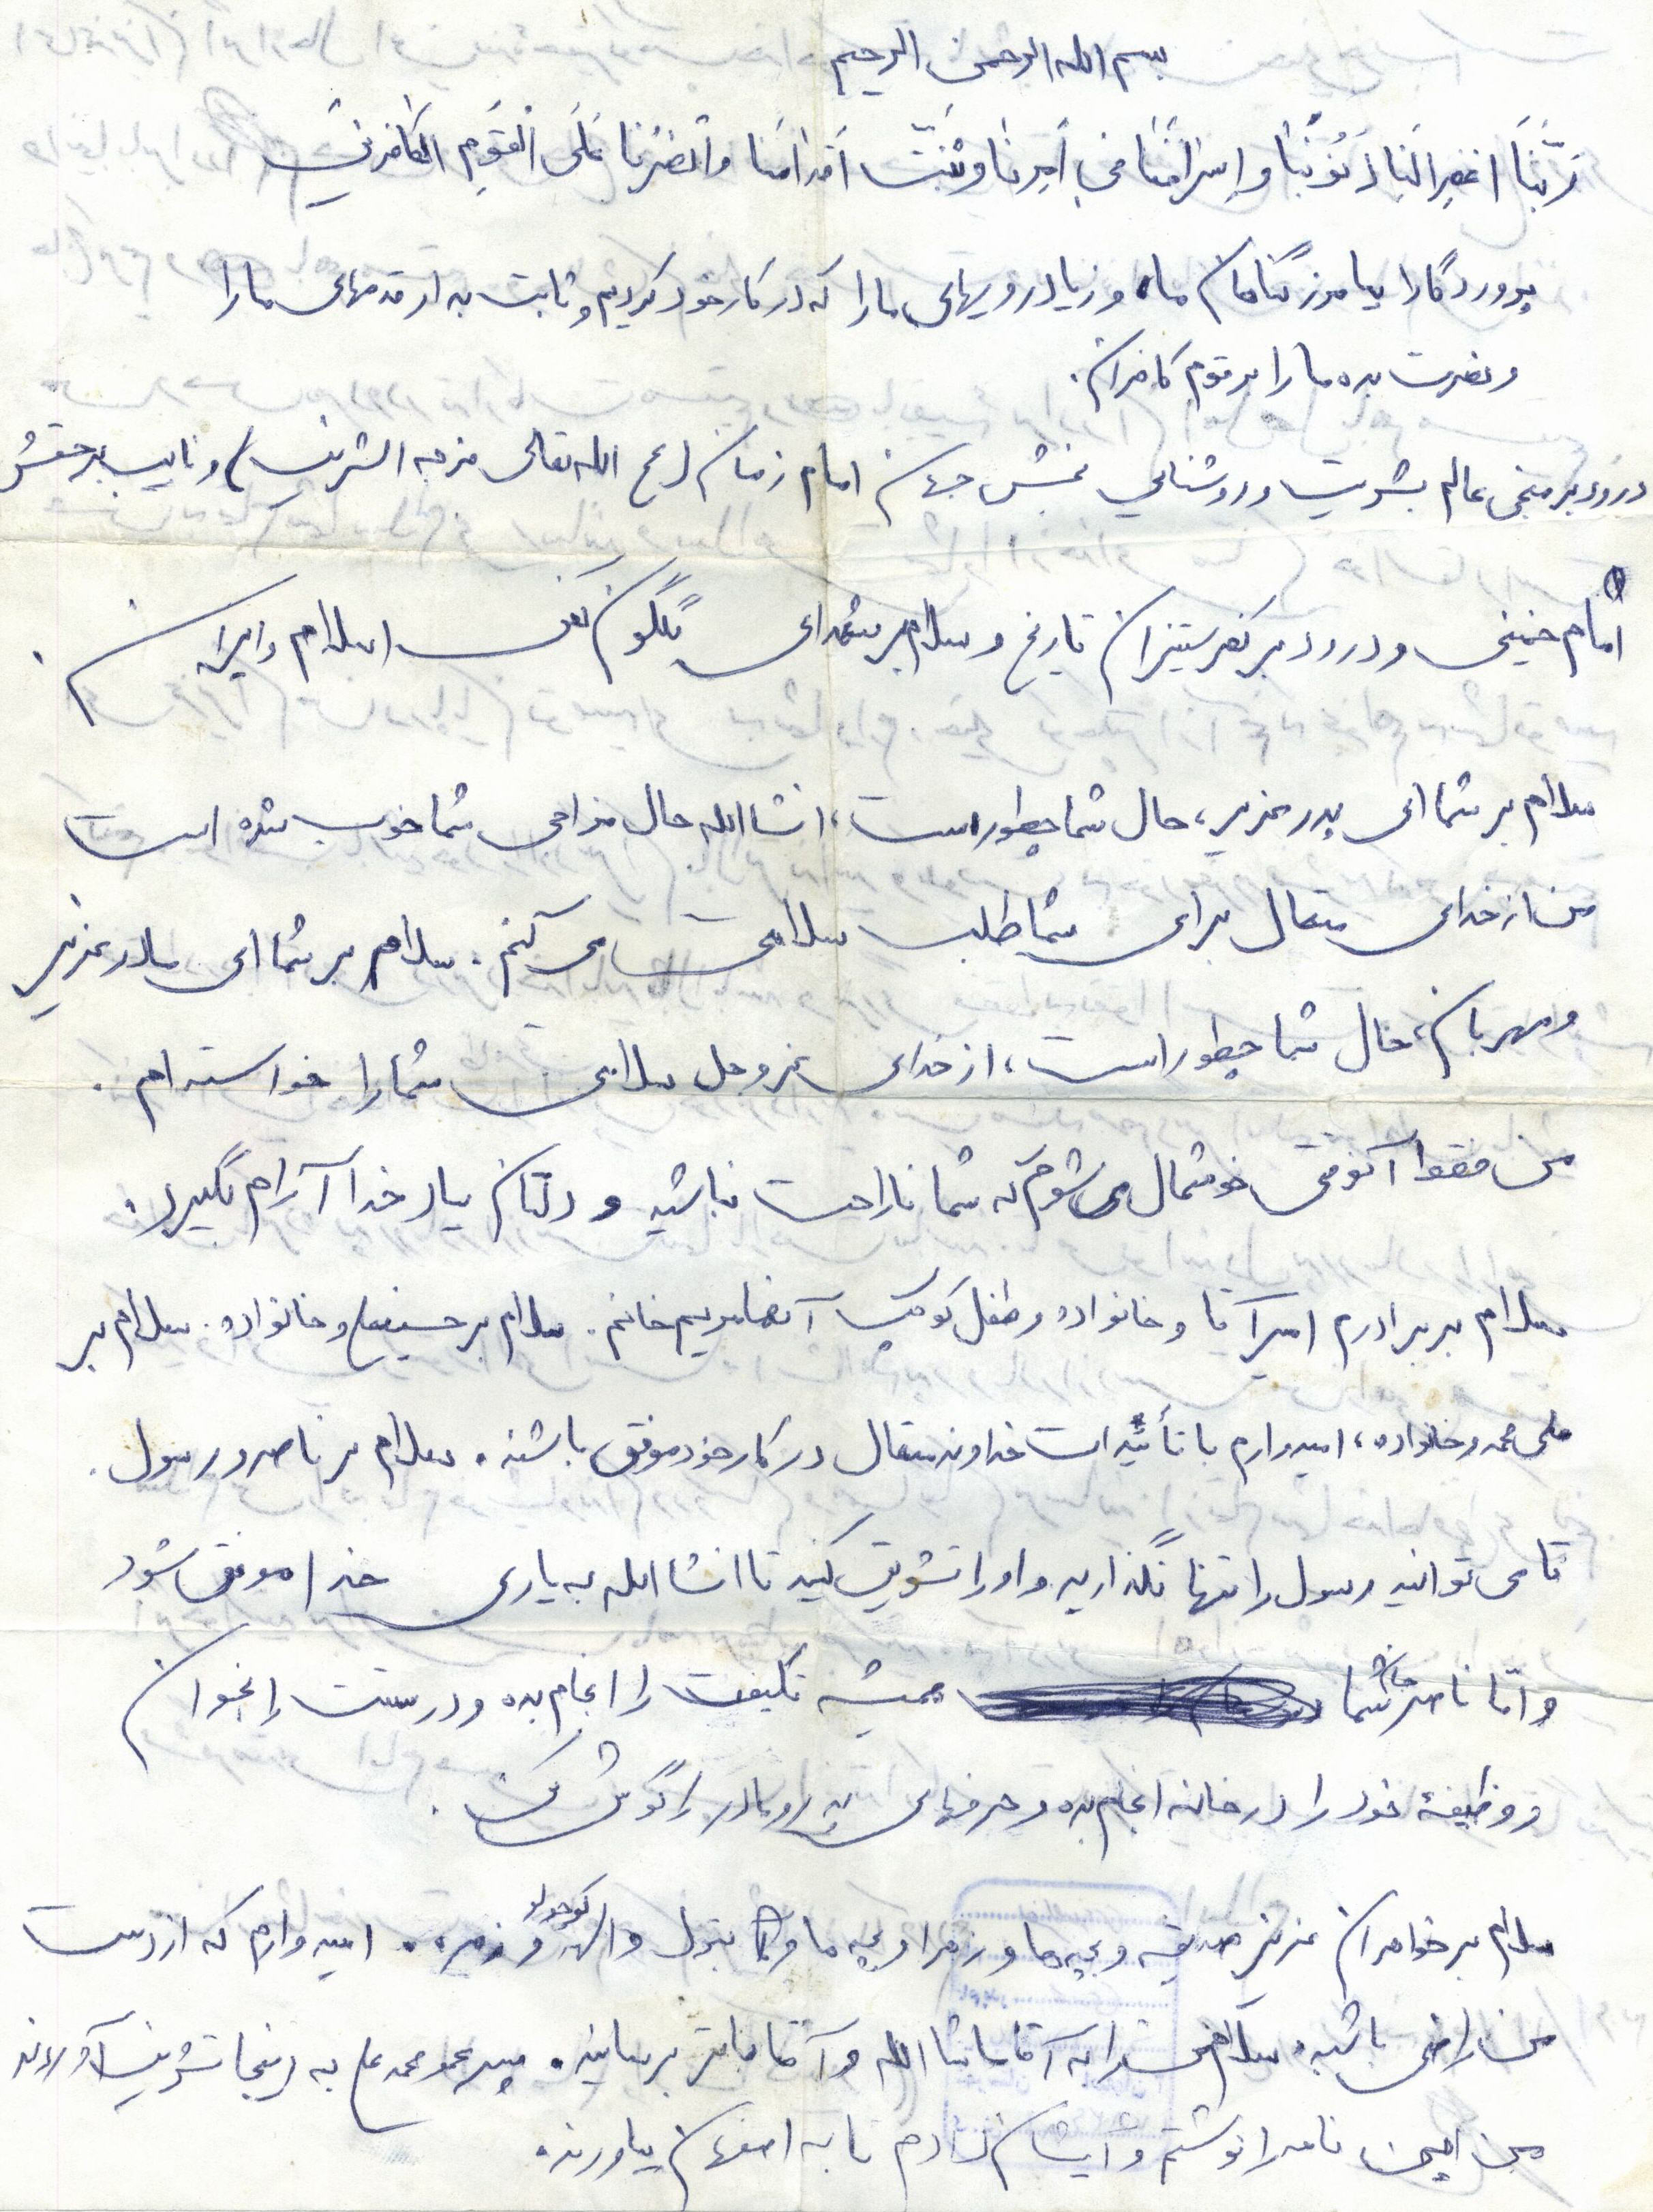 بسم الله الرحمن الرحیم
رَبَّنَا اغْفِر لَنَا ذُنُوبَنَا وَ اِسْرَافَنَا فِي اَمْرِنَا وَ ثَبِّت اَقْدَامَنَا وَ انْصُرْنَا عَلَى الْقَوْمِ الْكَافِرِينَ
پروردگارا بیامرز گناهان ما، و زیاده رویهای ما را که در کار خود کردیم و ثابت بدار قدمهای ما را
و نصرت بده ما را بر قوم کافران.
درود بر منجی عالم بشریت و روشنایی بخش جهان امام زمان (عج الله تعالی فرجه الشریف) و نایب بر حقش
امام خمینی و درود بر کفر ستیزان تاریخ و سلام بر شهدای گلگون کفن اسلام و ایران.
سلام بر شما ای پدر عزیر، حال شما چطور است، انشاالله حال مزاجی شما خوب شده است
من از خدای متعال برای شما طلب سلامتی می کنم. سلام بر شما ای مادر عزیر
و مهربان، حال شما چطور است، از خدای عزوجل سلامتی شما را خواسته ام.
من فقط آنوقتی خوشحال می شوم که شما ناراحت نباشید و دلتان بیاد خدا آرام بگیرد.
سلام بر برادرم امیر آقا و خانواده و طفل کوچک آنها مریم خانم. سلام بر حسینعلی و خانواده. سلام بر
علی محمد و خانواده، امیدوارم با تأئیدات خداوند متعال در کار خود موفق باشند. سلام بر ناصر و رسول.
تا می توانید رسول را تنها نگذارید و او را تشویق کنید تا انشاالله به یاری خدا موفق شود
و امّا ناصر جان شما همیشه تکلیفت را انجام بده و درست را بخوان
و وظیفهٔ خود را در خانه انجام بده و حرفهای پدر و مادر را گوش کن.
سلام بر خواهران عزیز صدیقه و بچه ها و زهرا و بچه ها و بتول و الهه کوچولو و زهره. امیدوارم که از دست
من راضی باشید. سلام من را به آقا ماشاالله و آقا باقر برسانید. پسر عمو محمد علی به اینجا تشریف آوردند
من این نامه را نوشتم و ایشان دادم تا به اصفهان بیاورند.